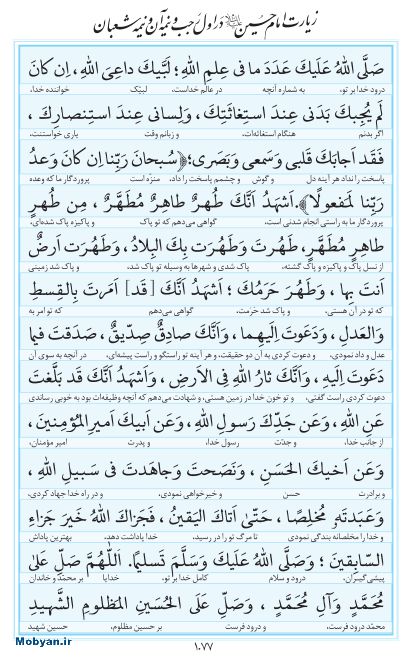 زیارت امام حسین علیه‌السلام در اول رجب و نیمه آن و نیمه شعبان
صَلَّى اللهُ عَلَيكَ عَدَدَ ما فى عِلمِ اللهِ؛ لَبَّيكَ داعِىَ اللهِ، اِن كانَ
درود خدا بر تو، به شماره آنچه در عالم خداست، لبیک خواننده خدا،
لَم يُجِبكَ بَدَنى عِندَ استِغاثَتِكَ، وَلِسانى عِندَ استِنصارِكَ،
اگر بدنم هنگام استغاثه‌ات، و زبانم وقت یاری خواستنت،
فَقَد اَجابَكَ قَلبى وَسَمعى وَبَصَرى؛ ﴿سُبحانَ رَبِّنا اِن كانَ وَعدُ
پاسخت را نداد هر آینه دل و گوش و چشمم پاسخت را داد، منزّه است پروردگار ما که وعده
رَبِّنا لَمَفعولًا﴾. اَشهَدُ اَنَّكَ طُهرٌ طاهِرٌ مُطَهَّرٌ، مِن طُهرٍ
پروردگار ما به راستی انجام شدنی است. گواهی می‌دهم که تو پاک و پاکیزه پاک شده‌ای،
طاهِرٍ مُطَهَّرٍ، طَهُرتَ وَطَهُرَت بِكَ البِلادُ، وَطَهُرَت اَرضٌ
از نسل پاک و پاکیزه و پاک گشته، پاک شدی و شهرها به وسیله تو پاک شد، و پاک شد زمینی
اَنتَ بِها، وَطَهُرَ حَرَمُكَ؛ اَشهَدُ اَنَّكَ [قَد] اَمَرتَ بِالقِسطِ
که تو در آن هستی، و پاک شد حرمت. گواهی می‌دهم که تو امر به
وَالعَدلِ، وَدَعَوتَ اِلَيهِما، وَاَنَّكَ صادِقٌ صِدّيقٌ، صَدَقتَ فيما
عدل و داد نمودی، و دعوت کردی به آن دو حقیقت، و هر آینه تو راستگو و راست پیشه‌ای. در آنچه به سوی آن
دَعَوتَ اِلَيهِ، وَاَنَّكَ ثارُ اللهِ فِى الاَرضِ، وَاَشهَدُ اَنَّكَ قَد بَلَّغتَ
دعوت کردی راست گفتی، و تو خون خدا در زمین هستی، و شهادت می‌دهم که آنچه وظیفه‌ات بود به خوبی رساندی
عَنِ اللهِ، وَعَن جَدِّكَ رَسولِ اللهِ، وَعَن اَبيكَ اَميرِ المُؤمِنينَ،
از جانب خدا، و جدّت رسول خدا، و پدرت امیر مؤمنان،
وَعَن اَخيكَ الحَسَنِ، وَنَصَحتَ وَجاهَدتَ فى سَبيلِ اللهِ،
و برادرت حسن و خیرخواهی نمودی، و در راه خدا جهاد کردی،
وَعَبَدتَهُ مُخلِصًا، حَتّىٰ اَتاكَ اليَقينُ، فَجَزاكَ اللهُ خَيرَ جَزاءِ
و خدا را مخلصانه بندگی نمودی تا مرگ تو را در رسید، خدا پاداشت دهد، بهترین پاداش
السّابِقينَ؛ وَصَلَّى اللهُ عَلَيكَ وَسَلَّمَ تَسليمًا. اَللّٰهُمَّ صَلِّ عَلىٰ
پیشی گیران، درود و سلام کامل خدا بر تو، خدایا بر محمّد و خاندان
مُحَمَّدٍ وَآلِ مُحَمَّدٍ، وَصَلِّ عَلَى الحُسَينِ المَظلومِ الشَّهيدِ
محمّد درود فرست، و درود فرست بر حسین مظلوم، حسین شهید
۱۰۷۷
Mobyan.ir